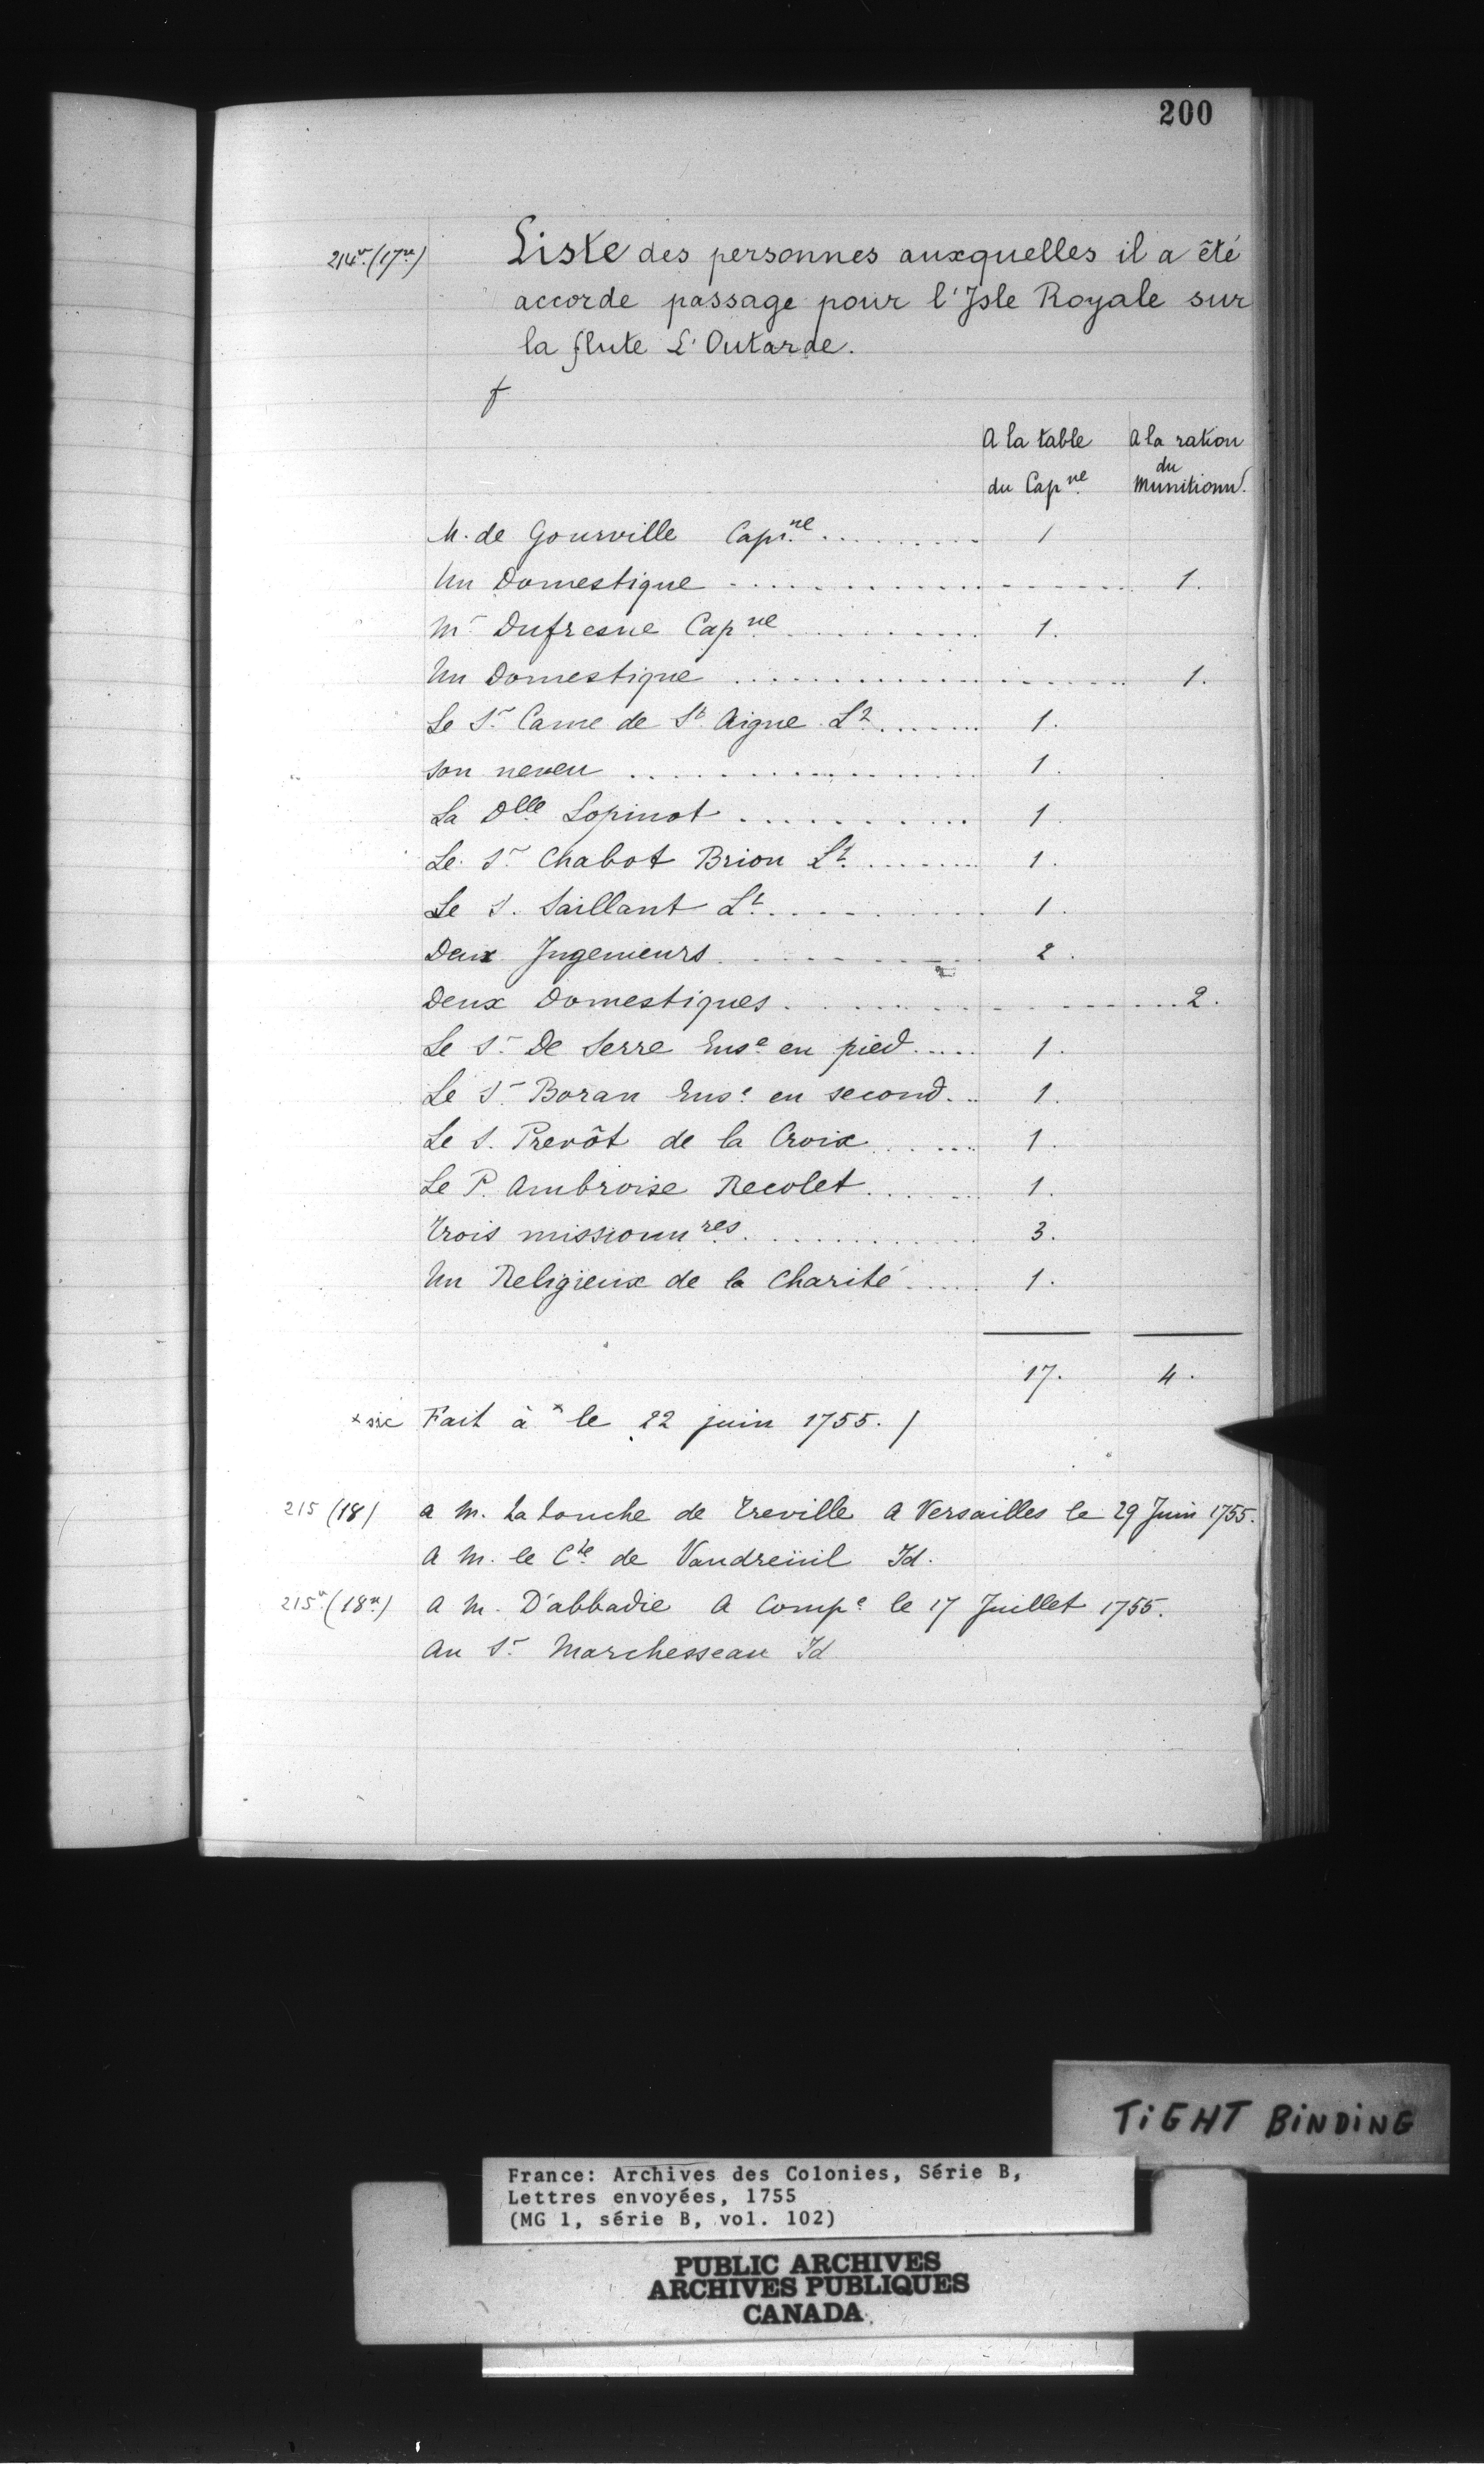 200
214v. (17v)
Liste des personnes auxquelles il a êté
accorde passage pour l'Isle Royale sur
la flute L'Outarde.
A la table A la ration
du
du Capne. Munitionn.
M. de Gourville Capne. 1
Un Domestique 1.
Mr Dufresne Capne 1.
Un Domestique 1.
Le Sr. Came de St. Aigne Lt 1.
son neveu 1.
La Dlle Lopinot 1.
Le Sr Chabot Brion Lt. 1.
Le S. Saillant Lt. 1.
Deux Ingenieurs 2.
Deux Domestiques 2.
Le Sr. De Serre Ense. en pied 1.
Le Sr Boran Ense. en second 1.
Le S. Prevôt de la Croix 1.
Le P. Ambroise Recolet 1.
Trois missionnres. 3.
Un Religieux de la Charité 1.
17. 4.
x sic Fait à x le 22 juin 1755. /
215 (18) a M. La touche de Treville A Versailles le 29 Juin 1755.
A M. le Cte. de Vaudreüil Id.
215v. (18v.) A M. D'abbadie A Compe. le 17 Juillet 1755.
Au Sr. Marchesseau Id
TiGHT BiNDiNG
France: Archives des Colonies, Série B,
Lettres envoyées, 1755
(MG 1, série B, vol. 102)
PUBLIC ARCHIVES
ARCHIVES PUBLIQUES
CANADA